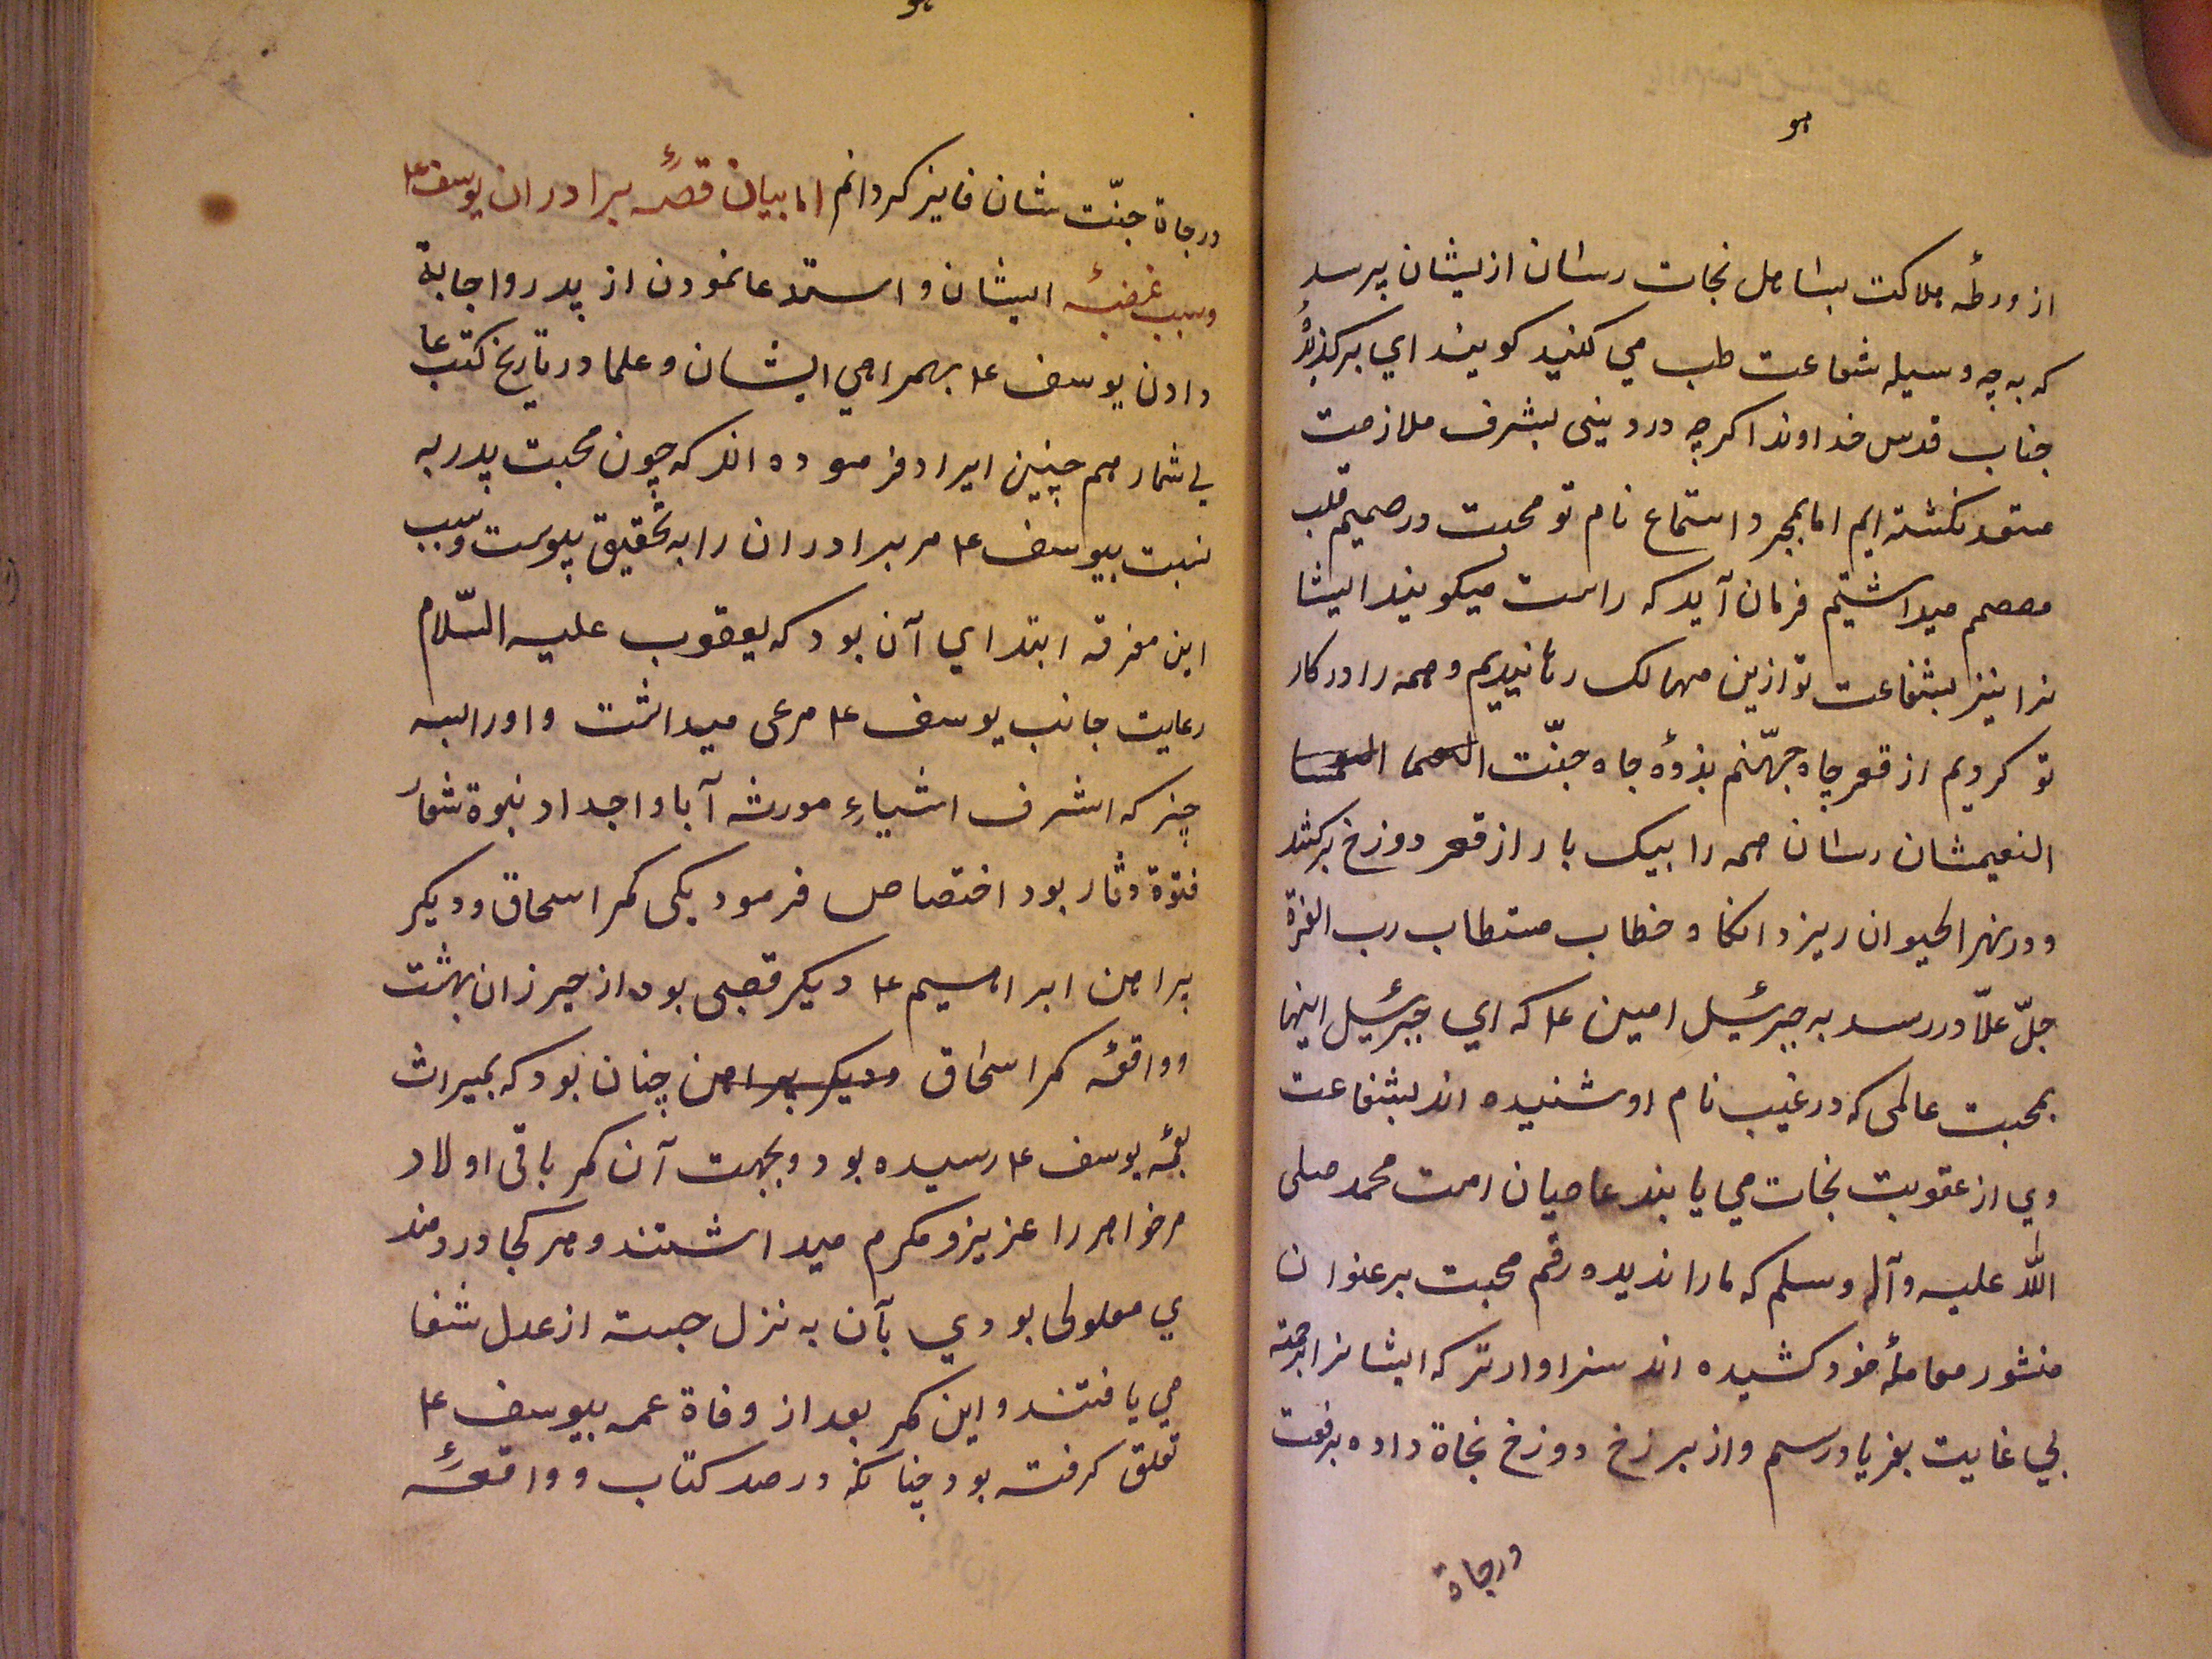 هو
از ورطهٔ هلاکت بساحل نجات رسان ازیشان پرسد
که به چه وسیله شفاعت طب می کنید کویند ای برکذیدهٔ
جناب قدس خداوند اکرچه در دینی بشرف ملازمت
مستعد نکشته ایم اما بمجرد استماع نام تو محبت در صمیم قلب
مصمم میداشتیم فرمان آید که راست میکویند ایشا
نرا نیز بشفاعت تو ازین مهالک رهانیدیم و همه را در کار
تو کردیم از قعر چاه جهّنم بذروهٔ جاه جنّت
النعیمشان رسان همه را بیک بار از قعر دوزخ برکشد
و در نهر الحیوان ریزد انکاه خطاب مستطاب رب العزة
جلّ علّا در رسد به جبرئیل امین ع که ای جبرئیل اینها
بمحبت عالمی که در غیب نام او شنیده اند بشفاعت
وی از عقوبت نجات می یابند عاصیان امت محمد صلی
اللّٰه علیه وآله وسلم که مارا ندیده رقم محبت بر عنوان
منشور معاملهٔ خود کشیده اند سزاوارتر که ایشانرا برحمة
بی غایت بفریاد رسم و از برزخ دوزخ نجاة داده برفعت
درجاة
هو
درجاة جنّت شان فایز کردانم اما بیان قصهٔ برادران یوسف ع
وسبب غضبهٔ ایشان و استدعا نمودن از پدر و اجابة
دادن یوسف ع بهمراهی ایشان و علما در تاریخ کتب ها
بی شمار هم چنین ایراد فرموده اند که چون محبت پدر به
نسبت بیوسف ع مر برادران را به تحقیق پیوست و سبب
این مفرقه ابتدای آن بود که یعقوب علیه السّلام
رعایت جانب یوسف ع مرعی میداشت و اورا بسه
چیز که اشرف اشیاءِ مورث آبا و اجداد نبوة شعار
فتوة دثار بود اختصاص فرمود یکی کمر اسحاق و دیکر
پراهن ابراهیم ع دیکر قصبی بود از جیرزان بهشت
و واقعهٔ کمر اسحاق دیکر پیراهن چنان بود که بمیراث
بعمهٔ یوسف ع رسیده بود و بجهت آن کمر باقی اولاد
مر خواهر را عزیز و مکرم میداشتند و هر کجا دردمند
ی معلولی بودی بآن به نزل جسته از عدل شفا
می یافتند و این کمر بعد از وفاة عمه بیوسف ع
تعلق کرفته بود چنانکه در صدر کتاب و واقعهٔ